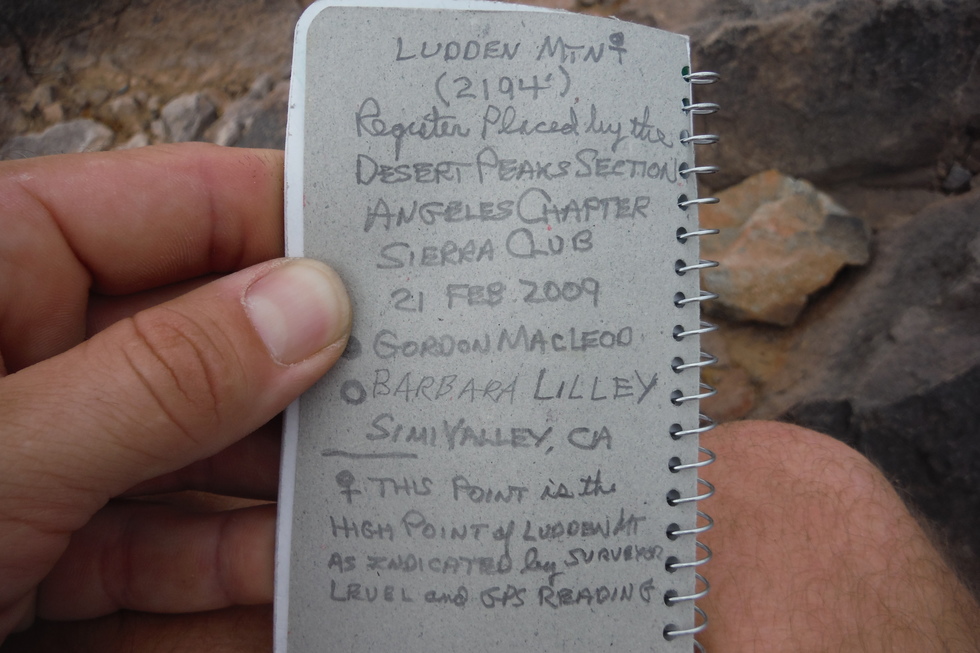 LUDDEN MTN♀
(2194')
Register Placed by the
DESERT PEAKS SECTION
ANGELES CHAPTER
SIERRA CLUB
21 FEB 2009
GORDON MACLEOD
BARBARA LILLEY
SIMI VALLEY, CA
♀ THIS POINT is the
HIGH POINT of LUDDEN MT
AS INDICATED by SURVEYOR
LEVEL and GPS READING